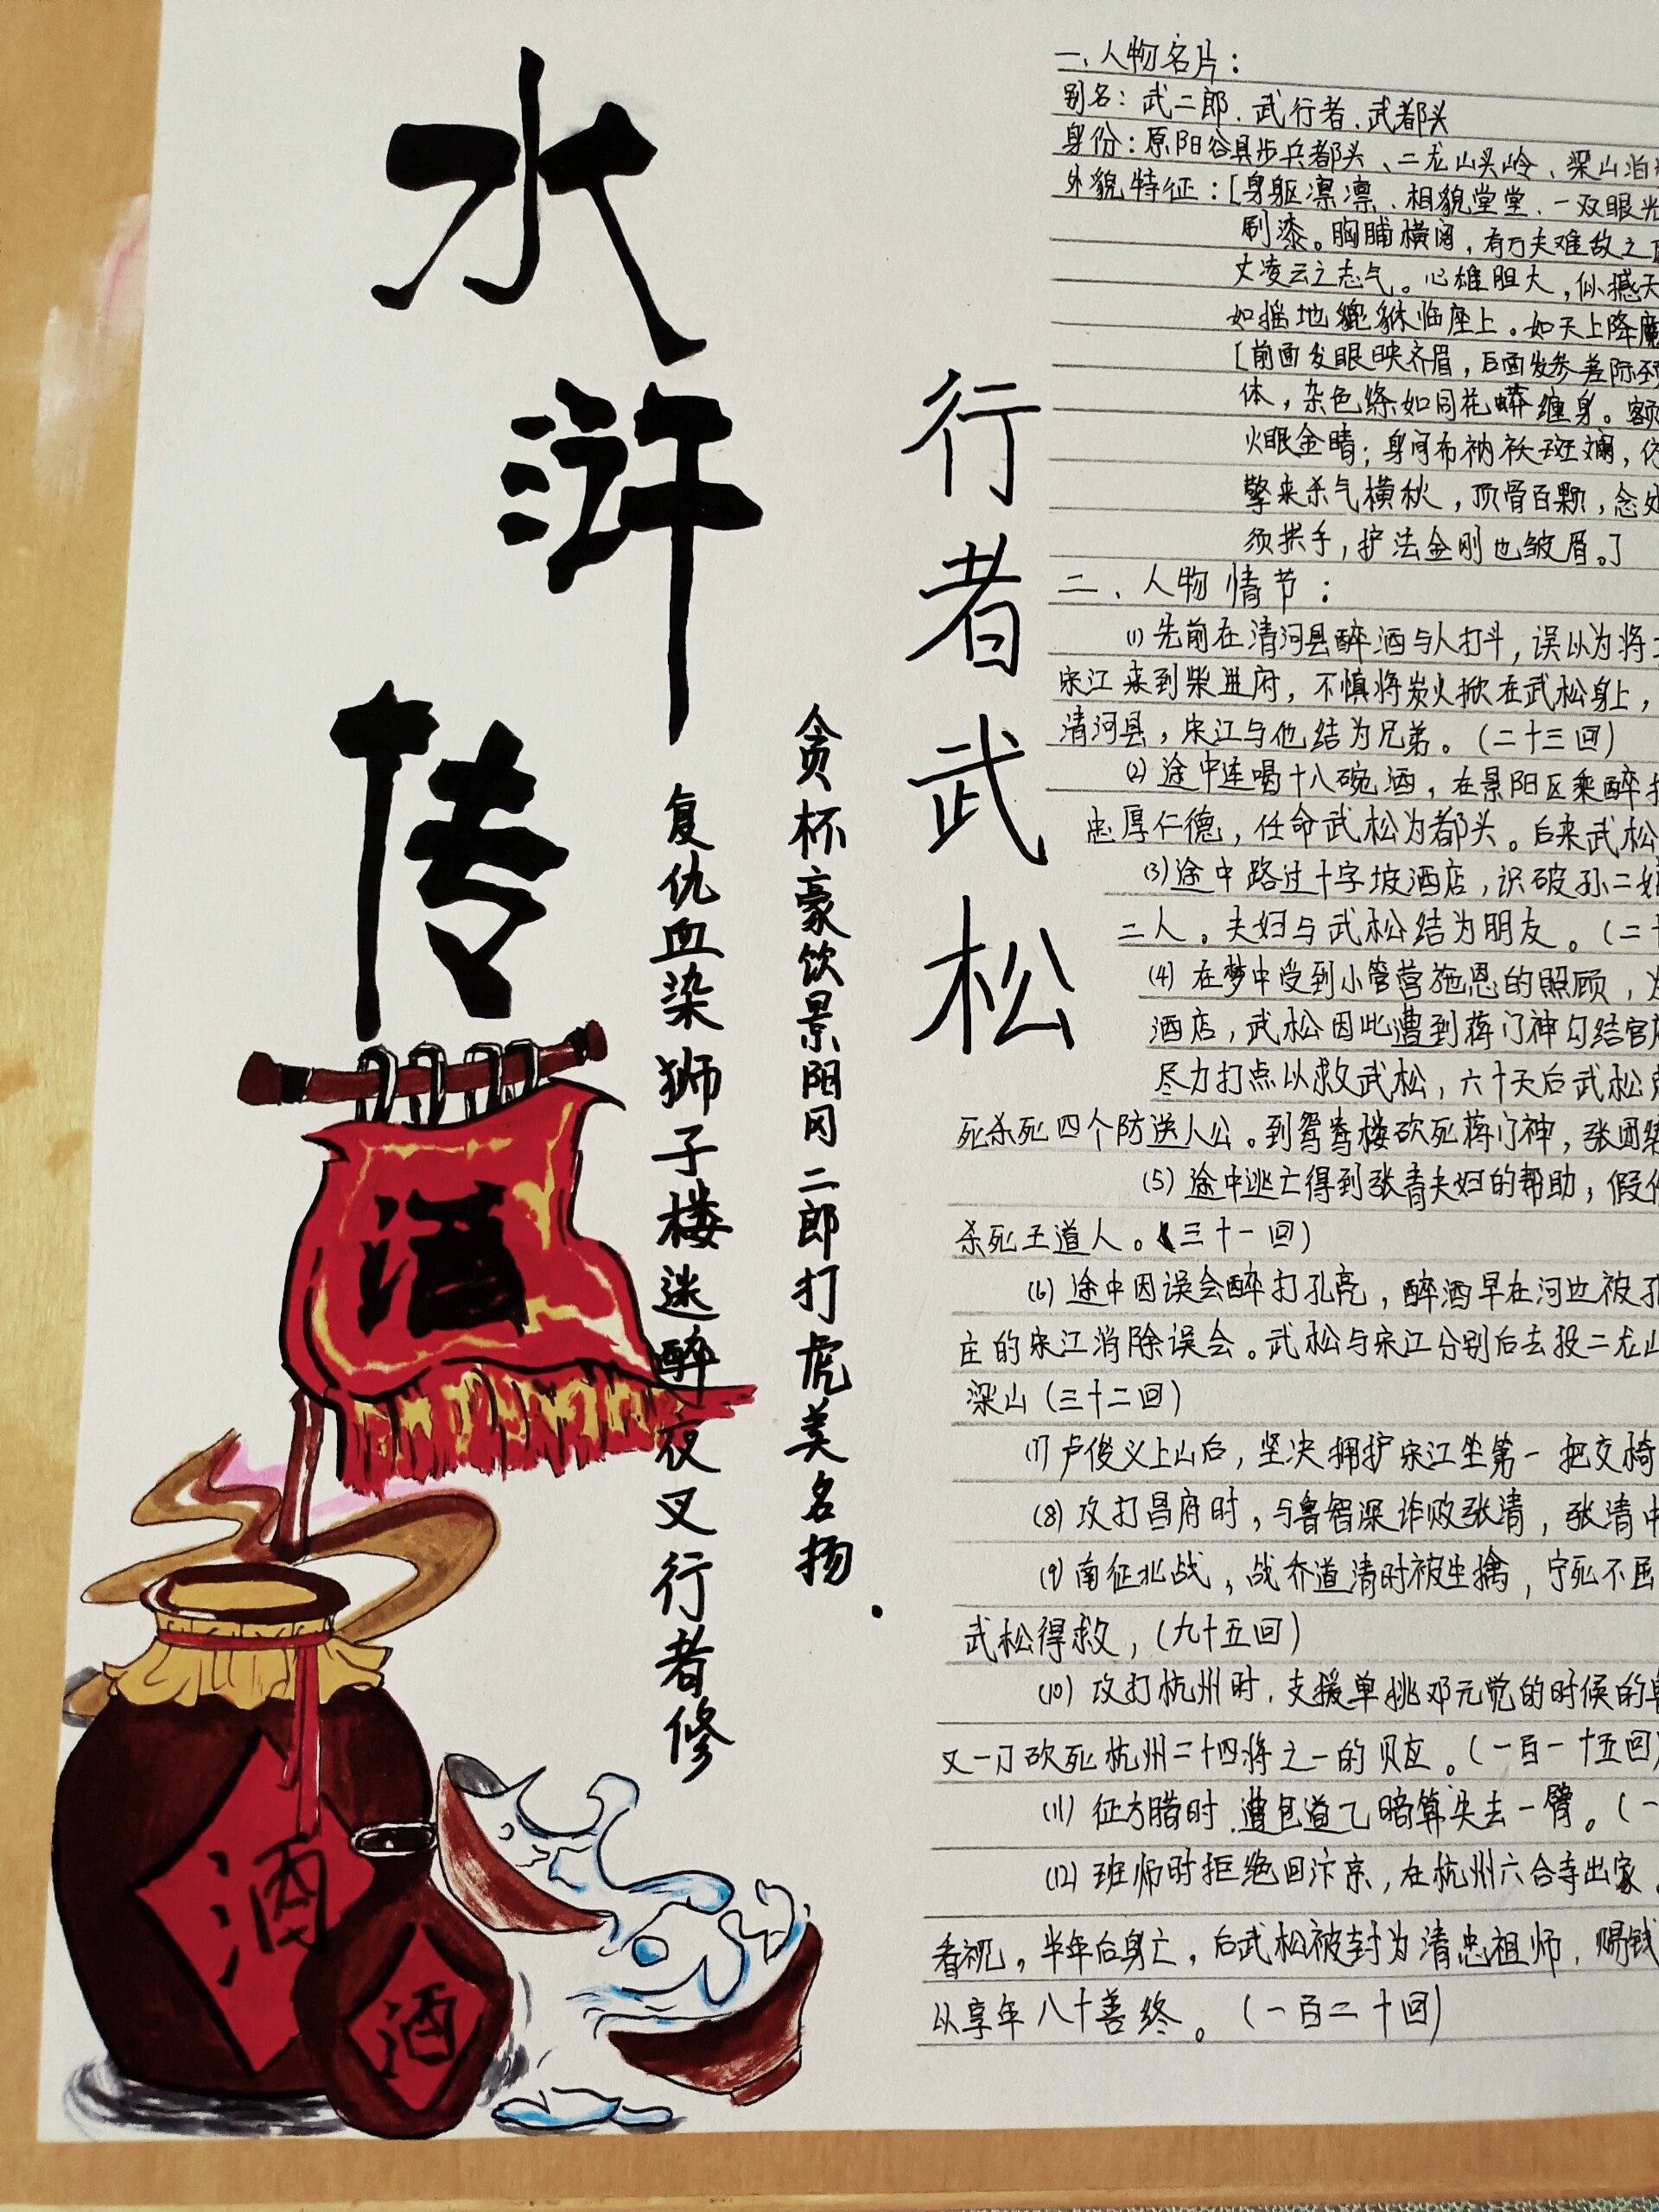 水浒传
行者武松
贪杯豪饮景阳冈二郎打虎美名扬.
复仇血染狮子楼迷醉夜叉行者修
酒
酒
酒
一、人物名片：
别名：武二郎、武行者、武都头
身份：原阳谷县步兵都头、二龙山头岭、梁山泊
外貌特征：[身躯凛凛、相貌堂堂、一双眼光
刷漆。胸脯横阔，有万夫难敌之
丈凌云之志气。心雄胆大，似撼天
如摇地貔貅临座上。如天上降魔
[前面发眼映齐眉，后面发参差际到
体，杂色绦如同花蟒缠身。额
火眼金睛；身间布衲袄斑斓，
擎来杀气横秋，顶骨百颗，念处
须拱手，护法金刚也皱眉。]
二、人物情节：
(1) 先前在清河县醉酒与人打斗，误以为将
宋江来到柴进府，不慎将炭火掀在武松身上，
清河县，宋江与他结为兄弟。(二十三回)
(2) 途中连喝十八碗酒，在景阳区乘醉打
忠厚仁德，任命武松为都头。后来武松
(3) 途中路过十字坡酒店，识破孙二娘
二人。夫妇与武松结为朋友。(二十
(4) 在梦中受到小管营施恩的照顾，
酒店，武松因此遭到蒋门神勾结官府
尽力打点以救武松，六十天后武松
死杀死四个防送人公。到鸳鸯楼砍死蒋门神，张团练
(5) 途中逃亡得到张青夫妇的帮助，假
杀死王道人。(三十一回)
(6) 途中因误会醉打孔亮，醉酒早在河边被孔
庄的宋江消除误会。武松与宋江分别后去投二龙山
梁山(三十二回)
(7) 卢俊义上山后，坚决拥护宋江坐第一把交椅
(8) 攻打昌府时，与鲁智深诈败张清，张清中
(9) 南征北战，战乔道清时被生擒，宁死不屈
武松得救，(九十五回)
(10) 攻打杭州时，支援单挑邓元觉的时候的鲁
又一刀砍死杭州二十四将之一的贝应。(一百一十五回)
(11) 征方腊时，遭包道乙暗算失去一臂。(一
(12) 班师时拒绝回汴京，在杭州六合寺出家。
看视，半年后身亡，后武松被封为清忠祖师，赐钱
以享年八十善终。(一百二十回)